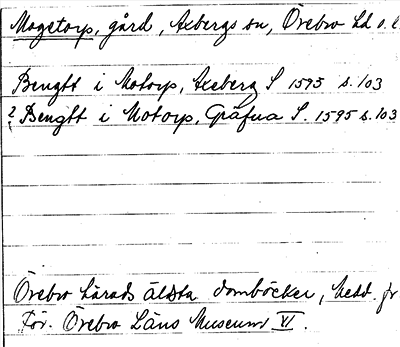 Mogetorp, gård, Axbergs sn, Örebro hd o. l.
Bengtt i Motorp, Axeberg S 1595 s. 103
? Bengtt i Motorp, Gräfua S. 1595 s. 103
Örebro härads äldsta domböcker, Medd. fr.
För. Örebro Läns Museum VI.